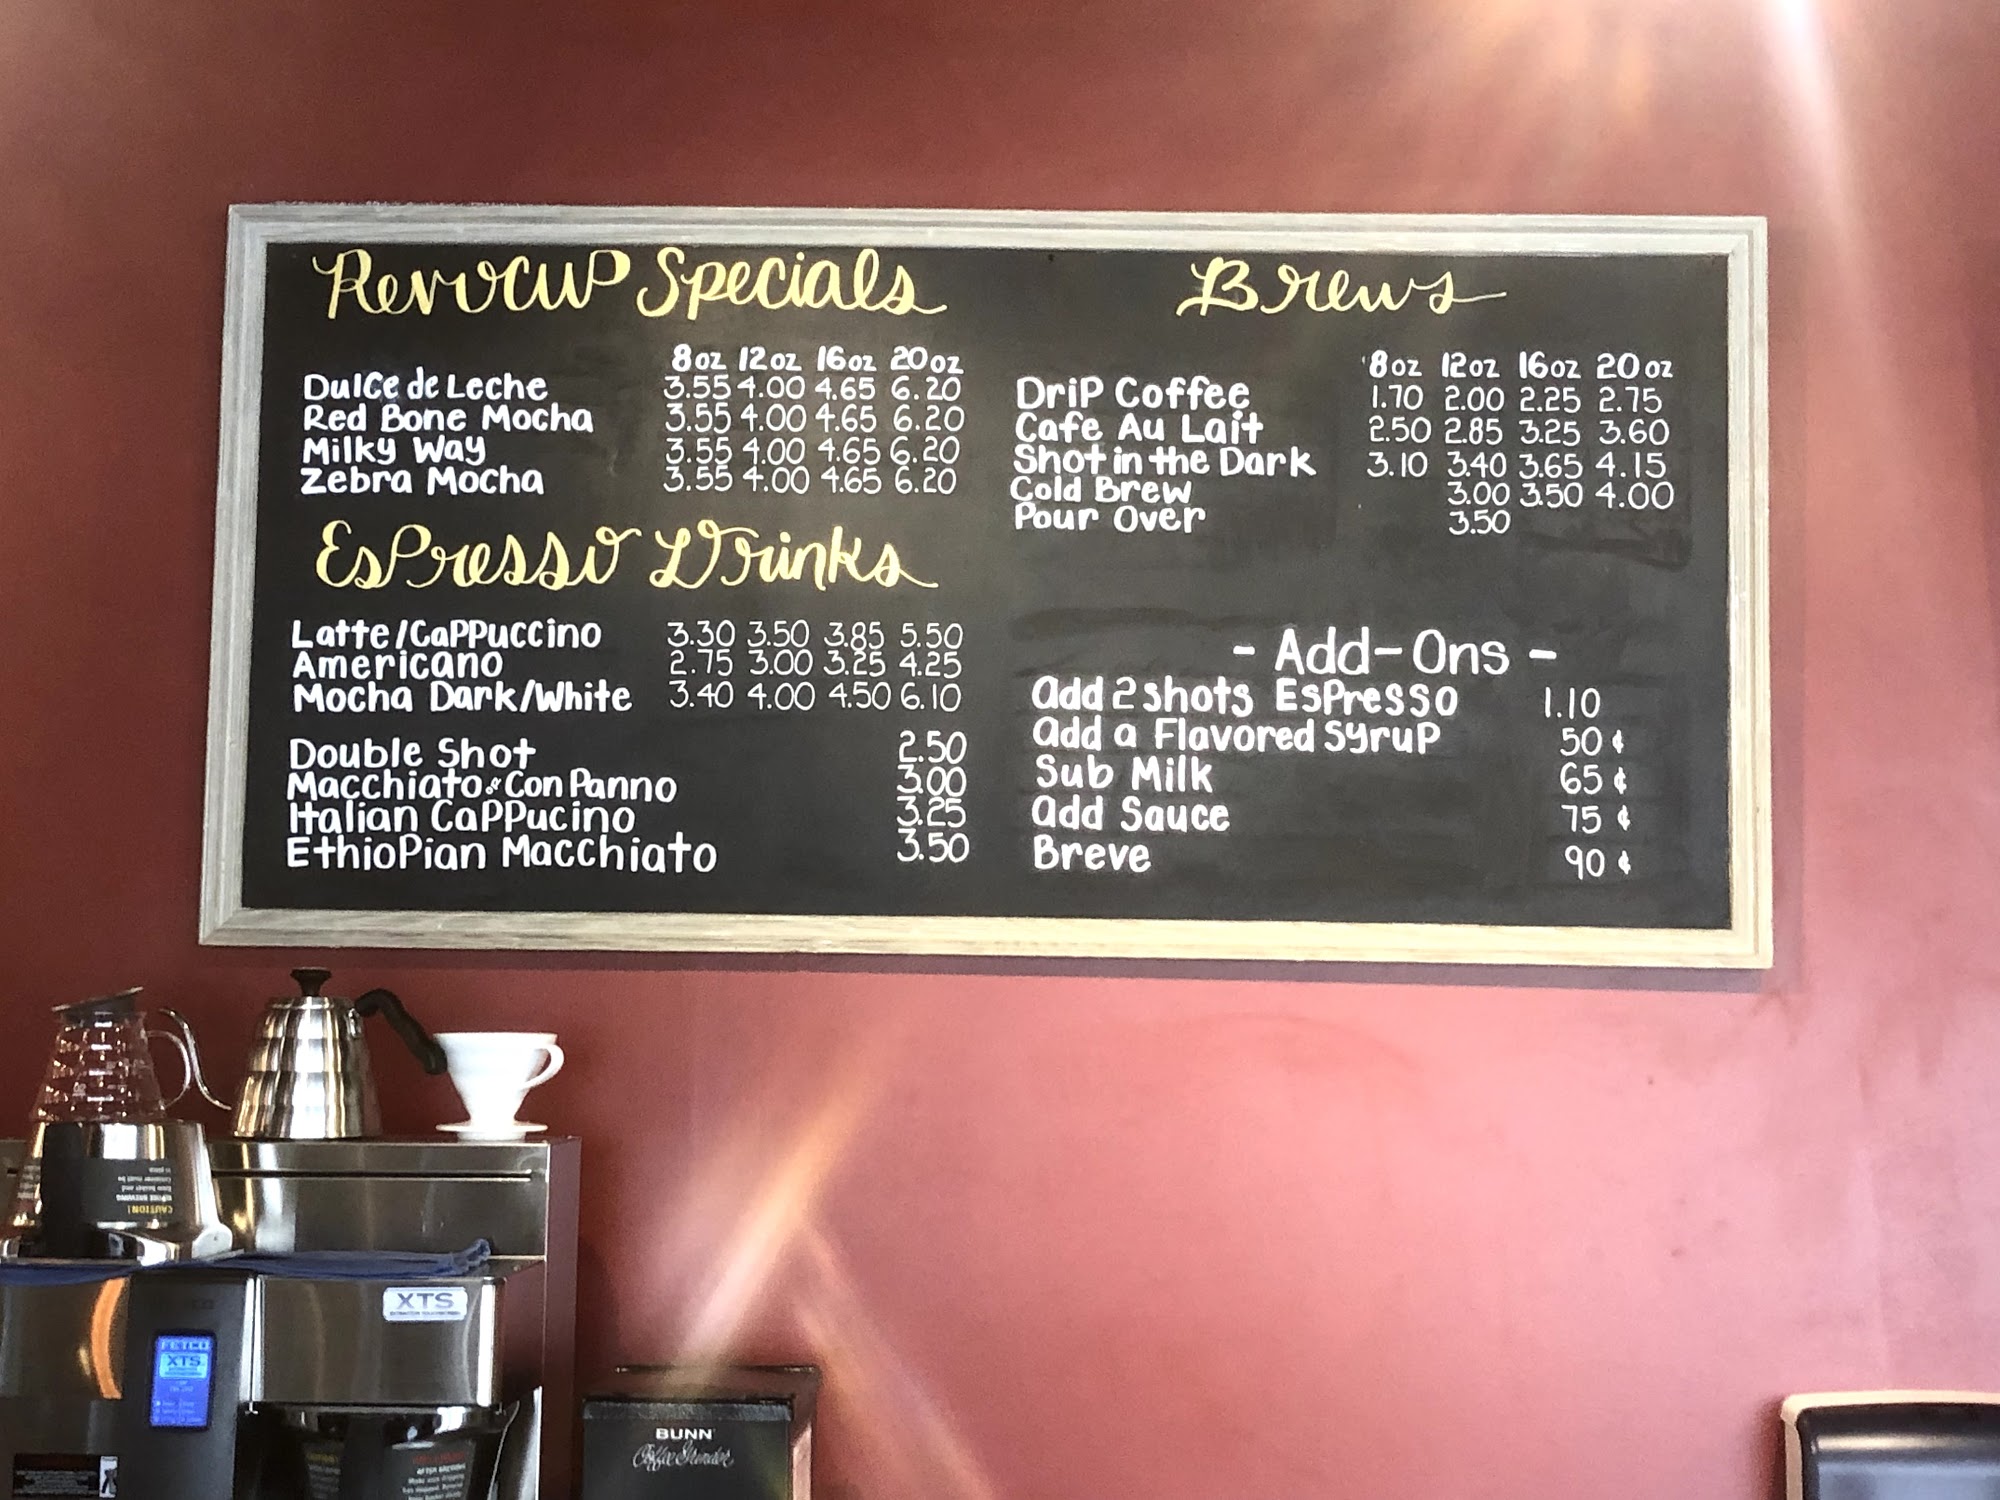 Revocup Specials
8oz 12oz 16oz 20oz
Dulce de Leche 3.55 4.00 4.65 6.20
Red Bone Mocha 3.55 4.00 4.65 6.20
Milky Way 3.55 4.00 4.65 6.20
Zebra Mocha 3.55 4.00 4.65 6.20
Espresso Drinks
Latte/Cappuccino 3.30 3.50 3.85 5.50
Americano 2.75 3.00 3.25 4.25
Mocha Dark/White 3.40 4.00 4.50 6.10
Double Shot 2.50
Macchiato & Con Panno 3.00
Italian Cappucino 3.25
Ethiopian Macchiato 3.50
Brews
8oz 12oz 16oz 20oz
Drip Coffee 1.70 2.00 2.25 2.75
Cafe Au Lait 2.50 2.85 3.25 3.60
Shot in the Dark 3.10 3.40 3.65 4.15
Cold Brew 3.00 3.50 4.00
Pour Over 3.50
- Add-Ons -
Add 2 shots Espresso 1.10
Add a Flavored Syrup 50 ¢
Sub Milk 65 ¢
Add Sauce 75 ¢
Breve 90 ¢
CAUTION!
XTS
FETCO
XTS
BUNN
Coffee Grinder
AFTER BREWING